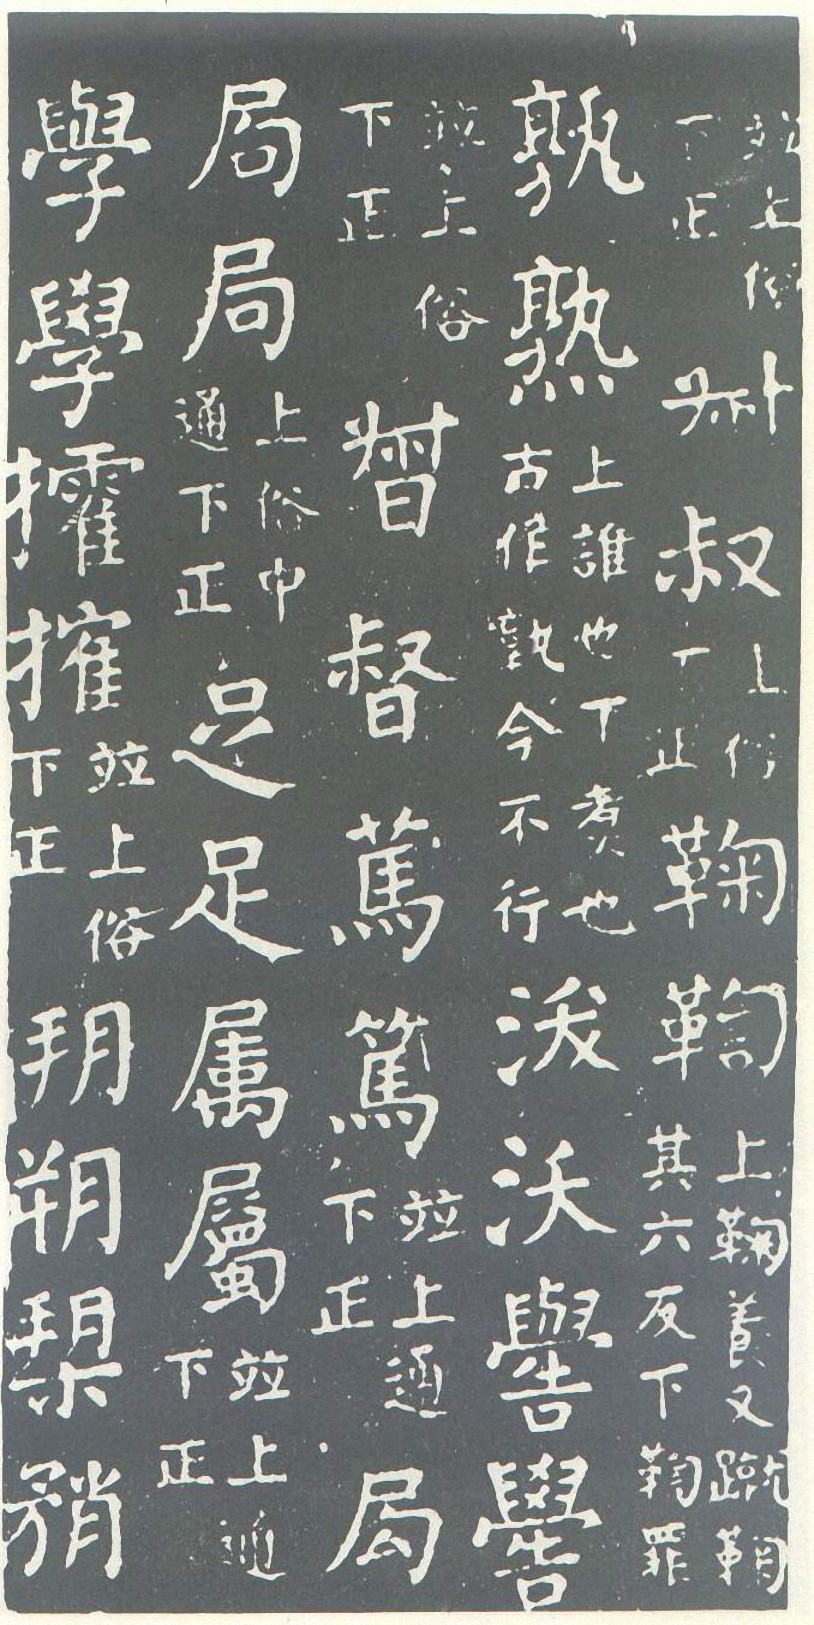 並上俗下正叔上俗下正鞠鞫上鞠養又蹴鞠其六反下鞫罪
孰熟上誰也下煑也古作今不行沃嚳嚳
並上俗下正督篤並上通下正局
局局上俗中通下正足足属屬並上通下正
學學搉並上俗下正朔矟